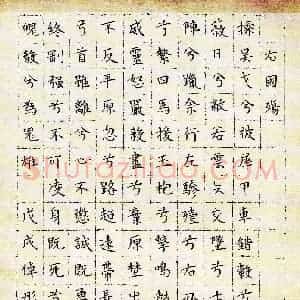 右國殤
操吴戈兮被犀甲車錯轂兮
蔽日兮敵若雲矢交墜兮士
陣兮躐余行左驂殪兮右
兮縶四馬援玉枹兮擊鳴
威靈怒嚴殺盡兮棄原野出
不反平原忽兮路超遠帶長
弓兮首雖離兮心不懲誠既
終剛强兮不可凌身既死兮
魄毅兮為鬼雄 戊戌倬
shufaziliao.com